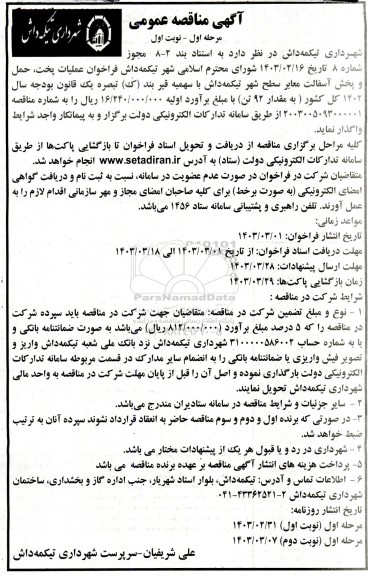 آگهی مناقصه عمومی
مرحله اول - نوبت اول
شهرداری تیکمه‌داش
شهرداری تیکمه‌داش در نظر دارد به استناد بند ۲-۸ مجوز
شماره ۸ تاریخ ۱۴۰۳/۰۲/۱۶ شورای محترم اسلامی شهر تیکمه‌داش فراخوان عملیات پخت، حمل
و پخش آسفالت معابر سطح شهر تیکمه‌داش با سهمیه قیر بند (ک) تبصره یک قانون بودجه سال
۱۴۰۲ کل کشور ( به مقدار ۹۲ تن) با مبلغ برآورد اولیه ۱۶/۲۴۰/۰۰۰/۰۰۰ ریال را به شماره مناقصه
۲۰۰۳۰۰۵۰۹۳۰۰۰۰۰۱ از طریق سامانه تدارکات الکترونیکی دولت برگزار و به پیمانکار واجد شرایط
واگذار نماید.
کلیه مراحل برگزاری مناقصه از دریافت و تحویل اسناد فراخوان تا بازگشایی پاکت‌ها از طریق
سامانه تدارکات الکترونیکی دولت (ستاد) به آدرس www.setadiran.ir انجام خواهد شد.
متقاضیان شرکت در فراخوان در صورت عدم عضویت در سامانه، نسبت به ثبت نام و دریافت گواهی
امضای الکترونیکی (به صورت برخط) برای کلیه صاحبان امضای مجاز و مهر سازمانی اقدام لازم را به
عمل آورند. تلفن راهبری و پشتیبانی سامانه ستاد ۱۴۵۶ می‌باشد.
مواعد زمانی:
تاریخ انتشار فراخوان: ۱۴۰۳/۰۳/۰۱
مهلت دریافت اسناد فراخوان: از تاریخ ۱۴۰۳/۰۳/۰۱ الی ۱۴۰۳/۰۳/۱۸
مهلت ارسال پیشنهادات: ۱۴۰۳/۰۳/۲۸
زمان بازگشایی پاکت‌ها: ۱۴۰۳/۰۳/۲۹
شرایط شرکت در مناقصه :
۱ - نوع و مبلغ تضمین شرکت در مناقصه: متقاضیان جهت شرکت در مناقصه باید سپرده شرکت
در مناقصه را که ۵ درصد مبلغ برآورد (۸۱۲/۰۰۰/۰۰۰ ریال) می‌باشد به صورت ضمانتنامه بانکی و
یا به شماره حساب ۳۱۰۰۰۰۰۵۸۶۰۰۲ شهرداری تیکمه‌داش نزد بانک ملی شعبه تیکمه‌داش واریز و
تصویر فیش واریزی یا ضمانتنامه بانکی را به انضمام سایر مدارک در قسمت مربوطه سامانه تدارکات
الکترونیکی دولت بارگذاری نموده و اصل آن را قبل از پایان مهلت شرکت در مناقصه به واحد مالی
شهرداری تیکمه‌داش تحویل نمایند.
۲ - سایر جزئیات و شرایط مناقصه در سامانه ستادیران مندرج می‌باشد.
۳- در صورتی که برنده اول و دوم و سوم مناقصه حاضر به انعقاد قرارداد نشوند سپرده آنان به ترتیب
ضبط خواهد شد.
۴ - شهرداری در رد و یا قبول هر یک از پیشنهادات مختار می باشد.
۵- پرداخت هزینه های انتشار آگهی مناقصه بر عهده برنده مناقصه می باشد
۶ - اطلاعات تماس و آدرس: تیکمه‌داش، بلوار استاد شهریار، جنب اداره گاز و بخشداری، ساختمان
شهرداری تیکمه‌داش ۲-۴۳۳۶۲۵۲۱-۰۴۱
تاریخ انتشار روزنامه:
مرحله اول (نوبت اول) ۱۴۰۳/۰۲/۳۱
مرحله اول (نوبت دوم) ۱۴۰۳/۰۳/۰۷
علی شریفیان-سرپرست شهرداری تیکمه‌داش